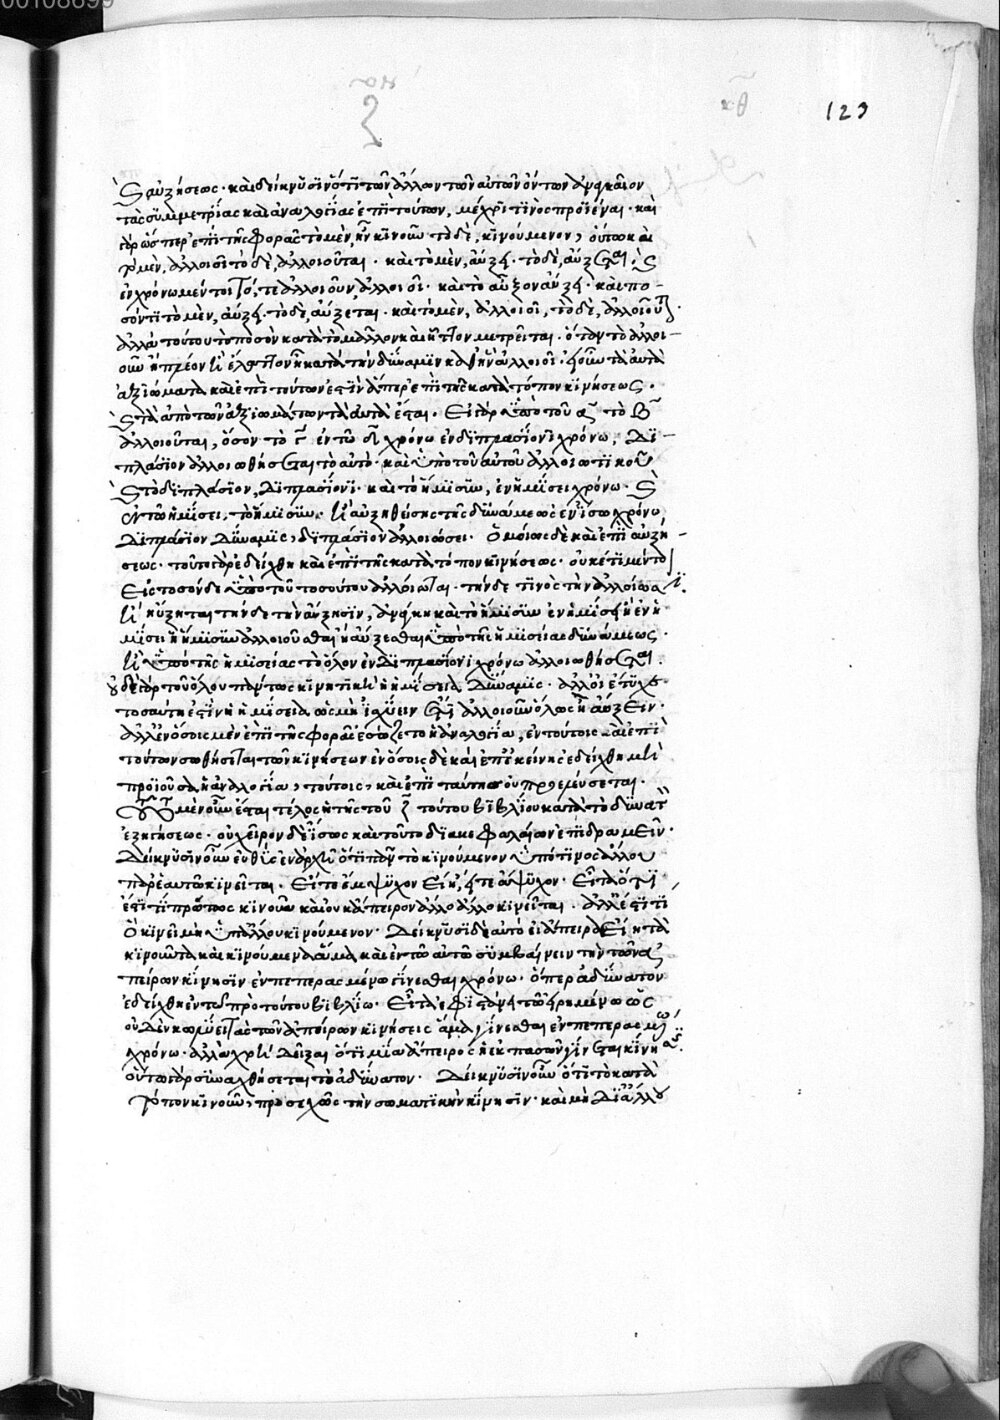 00108699
123
ζ
καὶ αὐξήσεως· καὶ δείκνυσιν ὅτι τῶν ἄλλων τῶν αὐτῶν ὄντων ἀναγκαῖον
τὰς συμμετρίας καὶ ἀναλογίας ἐπὶ τούτων, μέχρι τινὸς προϊέναι· καὶ
γὰρ ὥσπερ ἐπὶ τῆς φορᾶς τὸ μὲν ἦν κινοῦν τὸ δὲ, κινούμενον, οὕτω καὶ
τὸ μὲν, ἀλλοιοῖ τὸ δὲ, ἀλλοιοῦται· καὶ τὸ μὲν, αὔξει· τὸ δὲ, αὔξεται· καὶ
ἐν χρόνω μέντοι τό, τε ἀλλοιοῦν, ἀλλοιοῖ· καὶ τὸ αὖξον αὔξει· καὶ πο-
σόν τι τὸ μὲν, αὔξει· τὸ δὲ, αὔξεται· καὶ τὸ μὲν, ἀλλοιοῖ, τὸ δὲ, ἀλλοιοῦται·
ἀλλὰ τούτου τὸ ποσὸν κατὰ τὸ μᾶλλον καὶ ἧττον μετρεῖται· ὅταν τὸ ἀλλοι-
οῦν ἢ πλέον ἢ ἔλαττον ἢ κατὰ τὴν δύναμιν καθ' ἣν ἀλλοιοῖ· οὖν τὰ αὐτὰ
ἀξιώματα καὶ ἐπὶ τούτων ἐστὶν ἅπερ ἐπὶ τῆς κατὰ τόπον κινήσεως·
καὶ τὰ ἀπὸ τῶν ἀξιωμάτων τὰ αὐτὰ ἔσται. Εἰ γὰρ ὑπὸ τοῦ α τὸ β
ἀλλοιοῦται, ὅσον τὸ γ ἐν τῶ δ χρόνω ἐν διπλασίονι χρόνω, δι-
πλάσιον ἀλλοιωθήσεται τὸ αὐτὸ· καὶ ὑπὸ τοῦ αὐτοῦ ἀλλοιωτικοῦ
καὶ τὸ διπλάσιον, διπλασίονι· καὶ τὸ ἥμισυ, ἐν ἡμίσει χρόνω· καὶ
ἐν τῶ ἡμίσει, τὸ ἥμισυ· ἢ αὐξηθείσης τῆς δυνάμεως ἐν ἴσω χρόνω
διπλάσιον δύναμις, διπλάσιον ἀλλοιώσει. Ὁμοίως δὲ καὶ ἐπὶ αὐξή-
σεως· τοῦτο γὰρ ἐδείχθη καὶ ἐπὶ τῆς κατὰ τόπον κινήσεως· οὐκέτι μέντοι
Εἰς τοσόνδε ὑπὸ τοῦ τοσούτου ἀλλοιῶται· τήνδε τινὸς τὴν ἀλλοίωσιν
ἢ ηὔξηται τήνδε τὴν αὔξησιν, ἀνάγκη καὶ τὸ ἥμισυ ἐν ἡμίσει ἢ ἐν ἡ-
μίσει ἢ ἥμισυ ἀλλοιοῦσθαι ἢ αὔξεσθαι ὑπὸ τῆς ἡμισείας δυνάμεως·
ἢ ὑπὸ τῆς ἡμισείας τὸ ὅλον ἐν διπλασίονι χρόνω ἀλλοιωθήσεται.
οὐδὲ γὰρ τοῦ ὅλου πάντως κινητικὴ ἡ ἡμίσεια δύναμις· ἀλλ' εἰ ἔτυχε
τοσαύτη ἐστὶν ἡ ἡμίσεια ὡς μὴ ἰσχύειν ἔτι ἀλλοιοῦν ὅλως ἢ αὔξειν·
ἀλλ' ἐν ὅσοις μὲν ἐπὶ τῆς φορᾶς ἐσώζετο ἡ ἀναλογία, ἐν τούτοις καὶ ἐπὶ
τούτων σωθήσεται τῶν κινήσεων ἐν ὅσοις δὲ καὶ ἐπ' ἐκείνης ἐδείχθη μὴ
προϊοῦσα ἡ ἀναλογία, τούτοις, καὶ ἐπὶ ταύτης οὐ προεμένσεται.
μὲν οὖν ἔσται τέλος ἡ τῆς τοῦ ζ τούτου βιβλίου κατὰ τὸ δυνατὸν
ἐξηγήσεως· οὐ χεῖρον δὲ ἴσως καὶ τοῦτο δι' ἀνακεφαλαίων ἐπιδραμεῖν·
Δείκνυσιν οὖν εὐθὺς ἐν ἀρχῆ ὅτι πᾶν τὸ κινούμενον ὑπό τινος ἄλλου
παρ' ἑαυτῶ κινεῖται. Εἴτε ἔμψυχον Εἴη, εἴτε ἄψυχον. Εἶτα ὅτι
ἔστι τι πρώτως κινοῦν καὶ οὐκ ἄπειρον ἄλλο ἄλλο κινεῖται. ἀλλ' ἔστι τι
ὃ κινεῖ μὴ ὑπ' ἄλλου κινούμενον. Δείκνυσι δὲ αὐτὸ εἰ ἄπειρα Εἴη τὰ
κινοῦντα καὶ κινούμενα ἅμα καὶ ἐν τῶ αὐτῶ συμβαίνειν τὴν τῶν ἀ-
πείρων κίνησιν ἐν πεπερασμένω γίνεσθαι χρόνω· ὅπερ ἀδύνατον
ἐδείχθη ἐν τῶ πρὸ τούτου βιβλίω. Εἶτα ἐφιστάνει τῶ εἰρημένω ὡς
οὐδὲν κωλύει τὰς τῶν ἀπείρων κινήσεις ἅμα γίνεσθαι ἐν πεπερασμένω
χρόνω· ἀλλὰ χρὴ δεῖξαι ὅτι μία ἄπειρος ἡ ἐκ πασῶν γίνεται κίνησις
οὕτω γὰρ συναχθήσεται τὸ ἀδύνατον. Δείκνυσιν οὖν ὅτι τὸ κατὰ
τόπον κινοῦν, προσεχῶς τὴν σωματικὴν κίνησιν· καὶ μὴ δι' ἄλλου